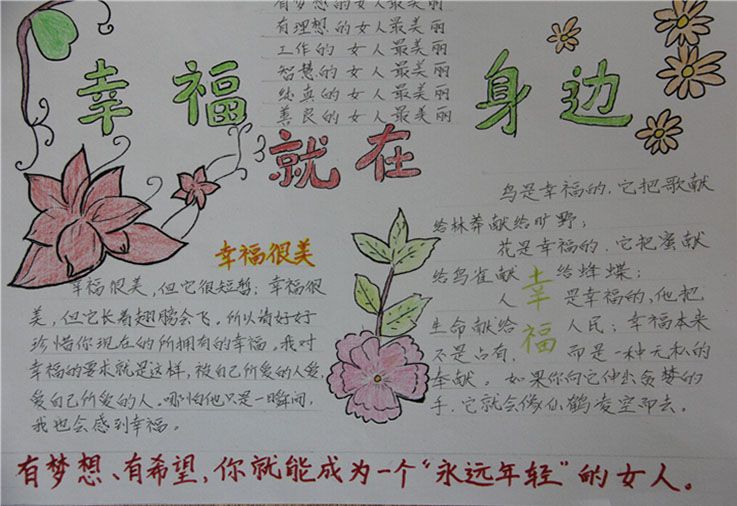 有梦想的女人最美丽
有理想的女人最美丽
工作的女人最美丽
智慧的女人最美丽
纯真的女人最美丽
善良的女人最美丽
幸福
就在
身边
幸福很美
幸福很美，但它很短暂；幸福很
美，但它长着翅膀会飞。所以请好好
珍惜你现在的所拥有的幸福。我对
幸福的要求就是这样，被自己所爱的人爱，
爱自己所爱的人。哪怕他只是一瞬间，
我也会感到幸福。
鸟是幸福的，它把歌献
给林莽献给旷野；
花是幸福的，它把蜜献
给鸟雀献给蜂蝶；
人是幸福的，他把
生命献给人民；幸福本来
不是占有，而是一种无私的
奉献。如果你向它伸出贪婪的
手，它就会像仙鹤凌空而去。
幸福
有梦想、有希望，你就能成为一个“永远年轻”的女人。